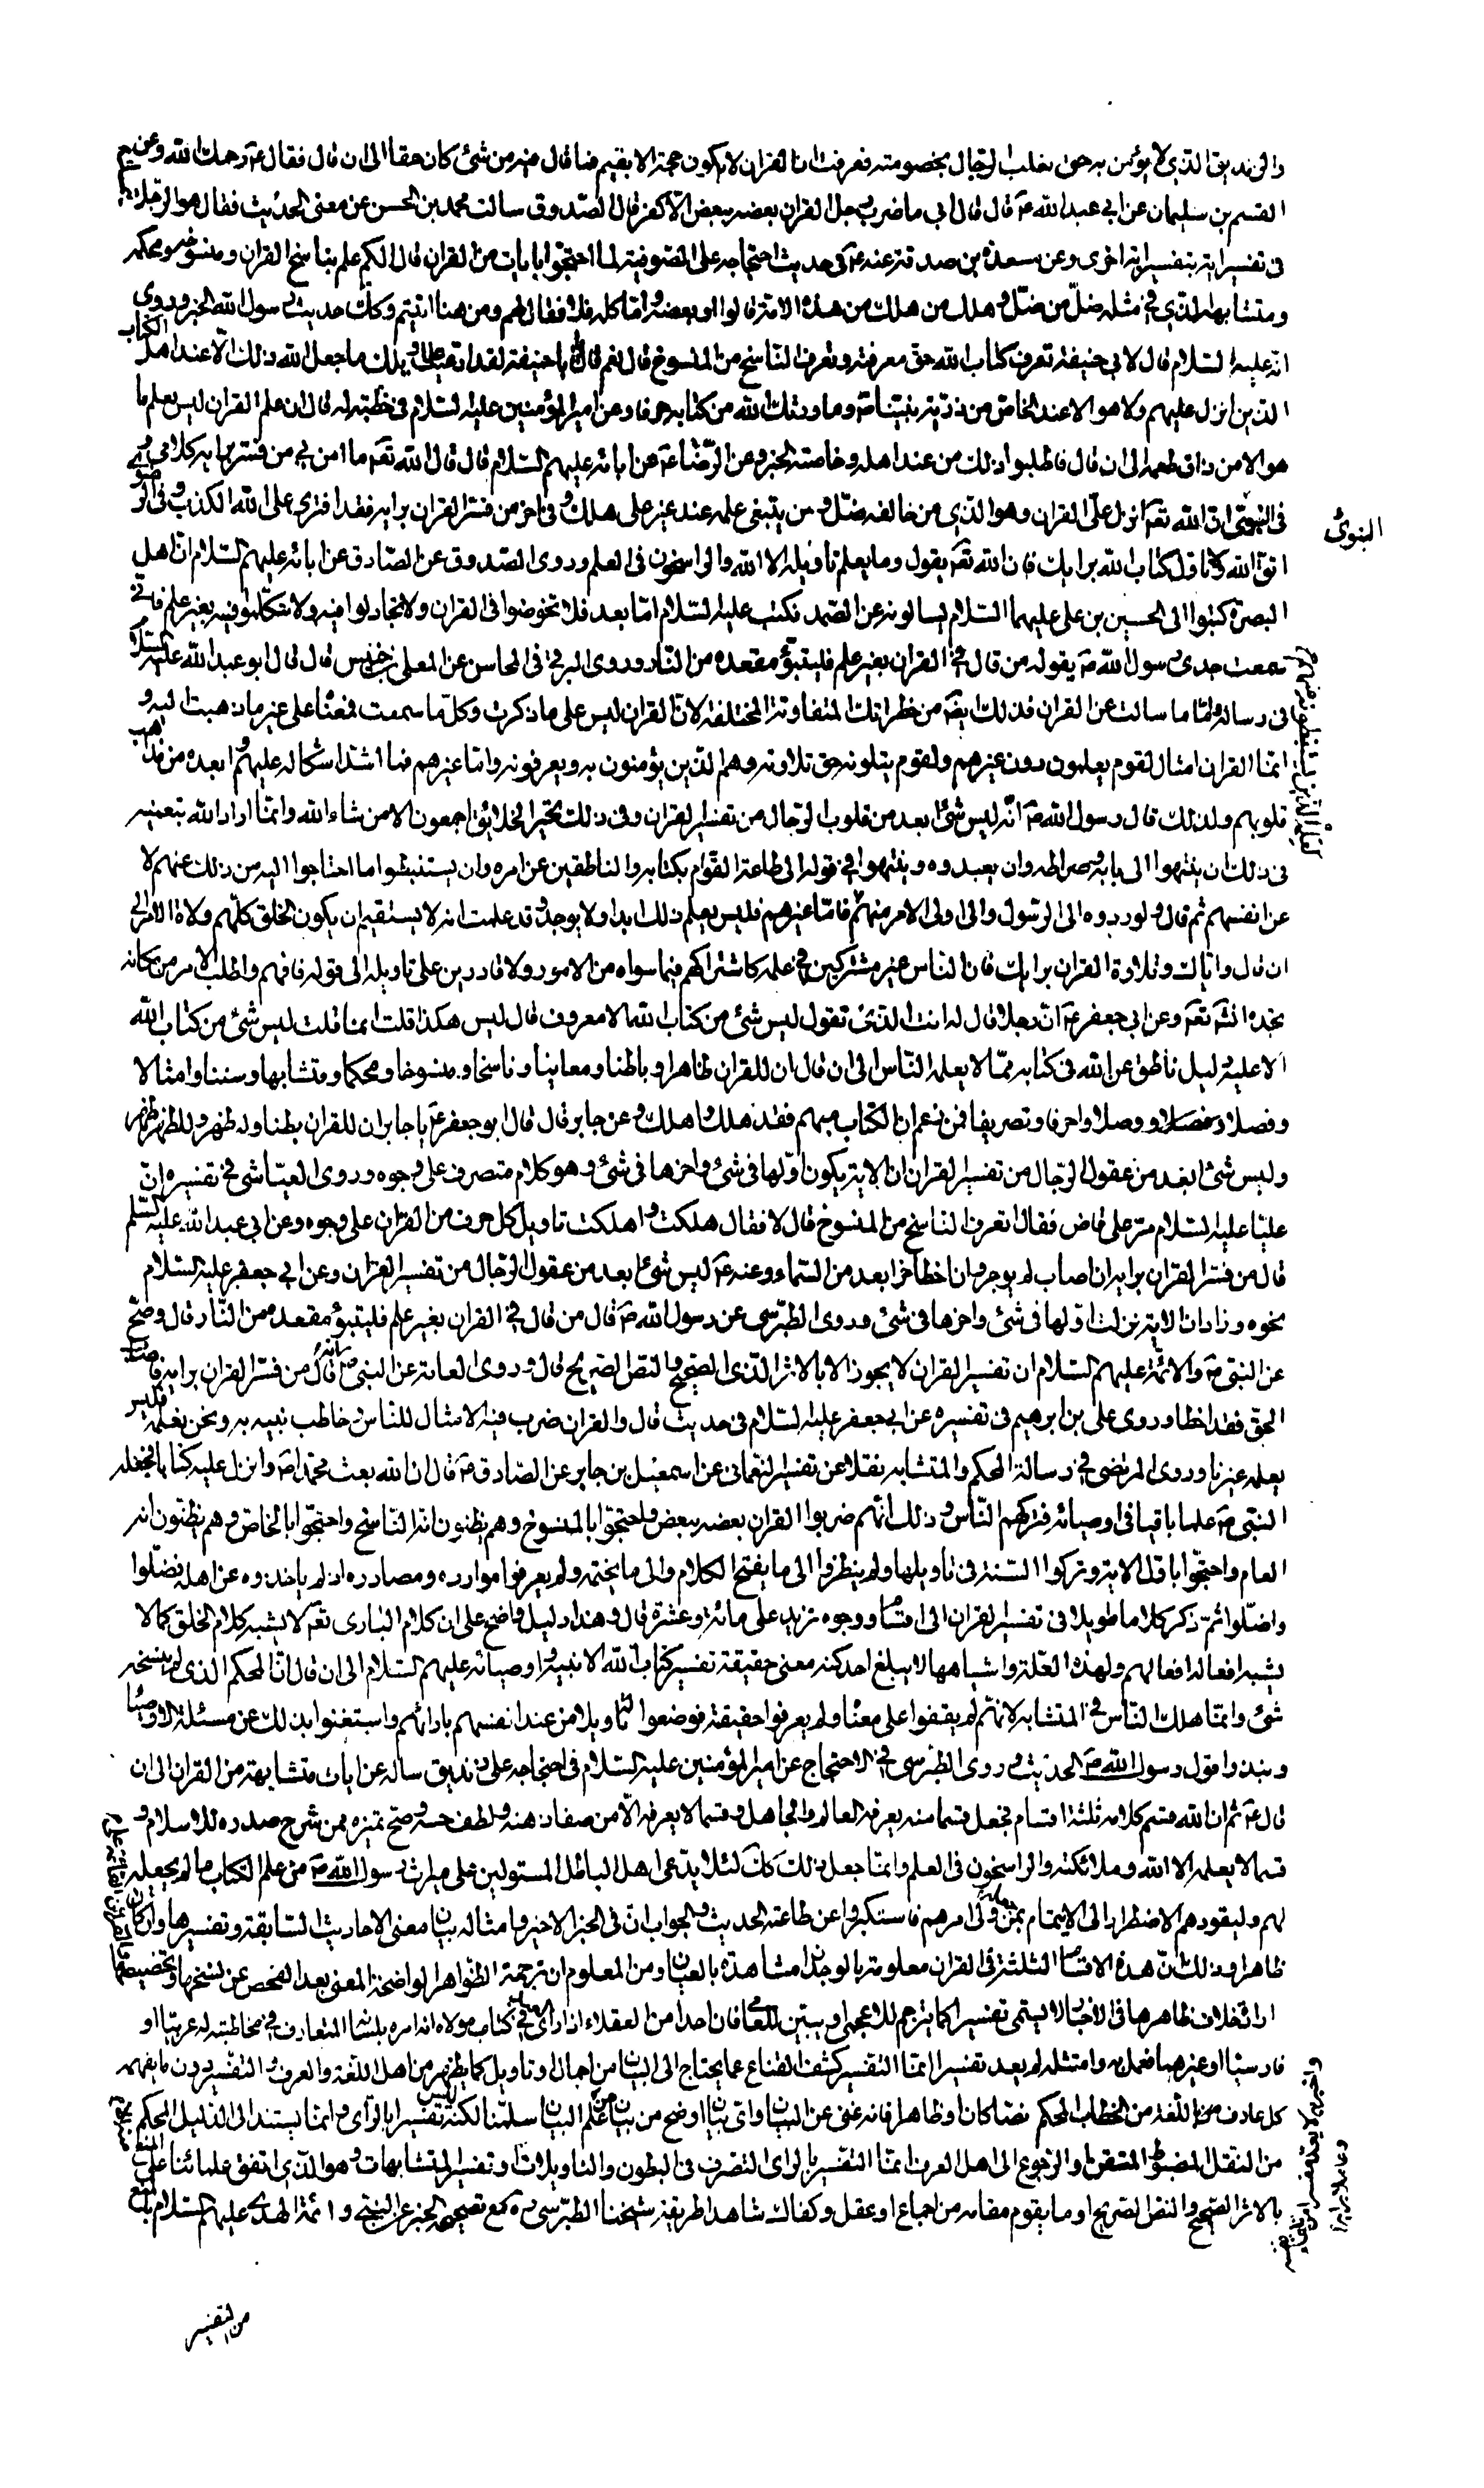 والزنديق الذي لا يؤمن به حتى يغلب الرجال بخصومته فعرفت ان القران لا يكون حجة الا بقيم فما قال فيه من شئ كان حقا الى ان قال فقال ع رحمك الله وعن
القسم بن سليمان عن ابي عبد الله ع قال قال ابي ما ضرب رجل القران بعضه ببعض الا كفر قال الصدوق سالت محمد بن الحسن عن معنى الحديث فقال هو الرجل
في تفسير اية بتفسير اية اخرى وعن مسعدة بن صدقة عنه ع في حديث احتجاجه على الصوفية لما احتجوا بايات من القران قال الكم علم بناسخ القران ومنسوخه ومحكمه
ومتشابهه الذي في مثله ضل من ضل وهلك من هلك من هذه الامة قالوا او بعضه واما كله فلا فقال لهم ومن هنا اتيتم وكك احاديث رسول الله الخبر وروى
انه عليه السلام قال لابي حنيفة تعرف كتاب الله حق معرفته وتعرف الناسخ من المنسوخ قال نعم قال يا با حنيفة لقد ادعيت علما ويلك ما جعل الله ذلك الا عند اهل الكتاب
الذين انزل عليهم ولا هو الا عند الخاص من ذرية نبينا ص وما ورثك الله من كتابه حرفا وعن امير المؤمنين عليه السلام في خطبة له قال ان علم القران ليس يعلم ما
هو الا من ذاق طعمه الى ان قال فاطلبوا ذلك من عند اهله وخاصته الخبر وعن الرضا ع عن ابائه عليهم السلام قال قال الله تعه ما امن بي من فسر برايه كلامي
في النبوي ان الله تعه انزل علي القران وهو الذي من خالفه ضل ومن يبتغي علمه عند غير علي هلك وفي اخر من فسر القران برايه فقد افترى على الله الكذب وفي الرضوي
اتق الله ولا تاول كتاب الله برايك فان الله تعه يقول وما يعلم تاويله الا الله والراسخون في العلم وروى الصدوق عن الصادق عن ابائه عليهم السلام ان اهل
البصرة كتبوا الى الحسين بن علي عليهما السلام يسالونه عن الصمد فكتب عليه السلام اما بعد فلا تخوضوا في القران ولا تجادلوا فيه ولا تتكلموا فيه بغير علم فاني
سمعت جدي رسول الله ص يقوله من قال في القران بغير علم فليتبوء مقعده من النار وروى البرقي في المحاسن عن المعلى بن خنيس قال قال ابو عبد الله عليه السلام
في رسالة واما ما سالت عن القران فذلك ايضه من خطراتك المتفاوتة المختلفة لان القران ليس على ما ذكرت وكل ما سمعت فمعناه على غير ما ذهبت اليه و
انما القران امثال لقوم يعلمون دون غيرهم ولقوم يتلونه حق تلاوته وهم الذين يؤمنون به ويعرفونه واما غيرهم فما اشد اشكاله عليهم وابعده من مذاهب
قلوبهم ولذلك قال رسول الله ص انه ليس شئ ابعد من قلوب الرجال من تفسير القران وفي ذلك تحير الخلايق اجمعون الا من شاء الله وانما اراد الله بتعميته
في ذلك ان ينتهوا الى بابه وصراطه وان يعبدوه وينتهوا في قوله الى طاعة القوام بكتابه والناطقين عن امره وان يستنبطوا ما احتاجوا اليه من ذلك عنهم لا
عن انفسهم ثم قال ولو ردوه الى الرسول والى اولي الامر منهم فاما غيرهم فليس يعلم ذلك ابدا ولا يوجد وقد علمت انه لا يستقيم ان يكون الخلق كلهم ولاة الامر الى
ان قال واياك وتلاوة القران برايك فان الناس غير مشتركين في علمه كاشتراكهم فيما سواه من الامور ولا قادرين على تاويله الى قوله فافهم واطلب الامر من مكانه
تجده انشه تعه وعن ابي جعفر ع ان رجلا قال له انت الذي تقول ليس شئ من كتاب الله الا معروف قال ليس هكذا قلت انما قلت ليس شئ من كتاب الله
الا عليه دليل ناطق عن الله في كتابه مما لا يعلمه الناس الى ان قال ان للقران ظاهرا وباطنا ومعاينا وناسخا ومنسوخا ومحكما ومتشابها وسننا وامثالا
وفصلا ووصلا واحرفا وتصريفا فمن زعم ان الكتاب مبهم فقد هلك واهلك وعن جابر قال قال ابو جعفر ع يا جابر ان للقران بطنا وله ظهر وللظهر ظهر
وليس شئ ابعد من عقول الرجال من تفسير القران ان الاية يكون اولها في شئ واخرها في شئ وهو كلام متصرف على وجوه وروى العياشي في تفسيره ان
عليا عليه السلام مر على قاض فقال اتعرف الناسخ من المنسوخ قال لا فقال هلكت واهلكت تاويل كل حرف من القران على وجوه وعن ابي عبد الله عليه السلام
قال من فسر القران برايه ان اصاب لم يوجر وان اخطا خر ابعد من السماء وعنه ع ليس شئ ابعد من عقول الرجال من تفسير القران وعن ابي جعفر عليه السلام
نحوه وزاد ان الاية ينزلت اولها في شئ واخرها في شئ وروى الطبرسي عن رسول الله ص قال من قال في القران بغير علم فليتبوء مقعده من النار قال وصح
عن النبي ص والائمة عليهم السلام ان تفسير القران لا يجوز الا بالاثر الصحيح والنص الصريح قال وروى العامة عن النبي ص انه قال من فسر القران برايه فاصاب
الحق فقد اخطا وروى علي بن ابرهيم في تفسيره عن ابي جعفر عليه السلام في حديث قال والقران ضرب فيه الامثال للناس وخاطب نبيه به ونحن نعلمه فليس
يعلمه غيرنا وروى المرتضى في رسالة المحكم والمتشابه نقلا عن تفسير النعماني عن اسمعيل بن جابر عن الصادق ع قال ان الله بعث محمدا ص وانزل عليه كتابا فجعله
النبي ص علما باقيا في اوصيائه فتركهم الناس وذلك انهم ضربوا القران بعضه ببعض واحتجوا بالمنسوخ وهم يظنون انه الناسخ واحتجوا بالخاص وهم يظنون انه
العام واحتجوا باول الاية وتركوا السنة في تاويلها ولم ينظروا الى ما يفتح الكلام والى ما يختمه ولم يعرفوا موارده ومصادره اذ لم ياخذوه عن اهله فضلوا
واضلوا ثم ذكر كلاما طويلا في تفسير القران الى اقسام ووجوه تزيد على مائة وعشرة قال وهذا دليل واضح على ان كلام الباري تعه لا يشبه كلام الخلق كما لا
يشبه افعاله افعالهم ولهذه العلة واشباهها لا يبلغ احد كنه معنى حقيقة تفسير كتاب الله الا نبيه واوصيائه عليهم السلام الى ان قال ان المحكم الذي لم ينسخه
شئ وانما هلك الناس في المتشابه لانهم لم يقفوا على معناه ولم يعرفوا حقيقة فوضعوا له تاويلا من عند انفسهم بارائهم واستغنوا بذلك عن مسئلة الاوصياء
ونبذوا قول رسول الله ص الحديث وروى الطبرسي في الاحتجاج عن امير المؤمنين عليه السلام في احتجاجه على زنديق ساله عن ايات متشابهة من القران الى ان
قال ع ثم ان الله قسم كلامه ثلثة اقسام فجعل قسما منه يعرفه العالم والجاهل وقسما لا يعرفه الا من صفا ذهنه ولطف حسه وصح تميزه ممن شرح صدره للاسلام و
قسما لا يعلمه الا الله وملائكته والراسخون في العلم وانما جعل ذلك كك لئلا يدعي اهل الباطل المستولين على ميراث رسول الله ص من علم الكتاب ما لم يجعله
لهم وليقودهم الاضطرار الى الايتمام بمن ولي امرهم فاستكبروا عن طاعته الحديث والجواب ان في الخبر الاخير وامثاله بيان معنى الاحاديث السابقة وتفسيرها وان كان
ظاهرا وذلك ان هذه الاقسام الثلثة في القران معلومة بالوجدان مشاهدة بالعيان ومن المعلوم ان ترجمة الظواهر الواضحة المعنى بعد الفحص عن نسخها وتخصيصها
ارادة خلاف ظاهرها في الاخبار لا يسمى تفسيرا كما يترجم للاعجمي ويبين للعامي فان احدا من العقلاء اذا راى في كتاب مولاه انه امره بلسانه المتعارف في مخاطبته له عربيا او
فارسيا او غيرهما فعمل به وامتثله لم يعد تفسيرا انما التفسير كشف القناع عما يحتاج الى البيان من اجمال او تاويل كما يظهر من اهل اللغة والعرف التفسير دون ما يفهمه
كل عارف اللغة من الخطاب المحكم نصا كان او ظاهرا فانه غني عن البيان واي بيان اوضح من بيان من علم البيان سلمنا لكنه ليس تفسيرا بالراي وانما يستند الى الدليل المحكم
من النقل المضبوط المتقن والرجوع الى اهل العرف انما التفسير بالراي التصرف في البطون والتاويلات وتفسير المتشابهات وهو الذي اتفق علمائنا على المنع
بالاثر الصحيح والنص الصريح او ما يقوم مقامه من اجماع او عقل وكفاك شاهدا طريقة شيخنا الطبرسي ره مع تصحيحه الخبر عن النبي وائمة الهدى عليهم السلام بالمنع
من التفسير
النبوي
لعلمه الذين يستنبطونه منهم